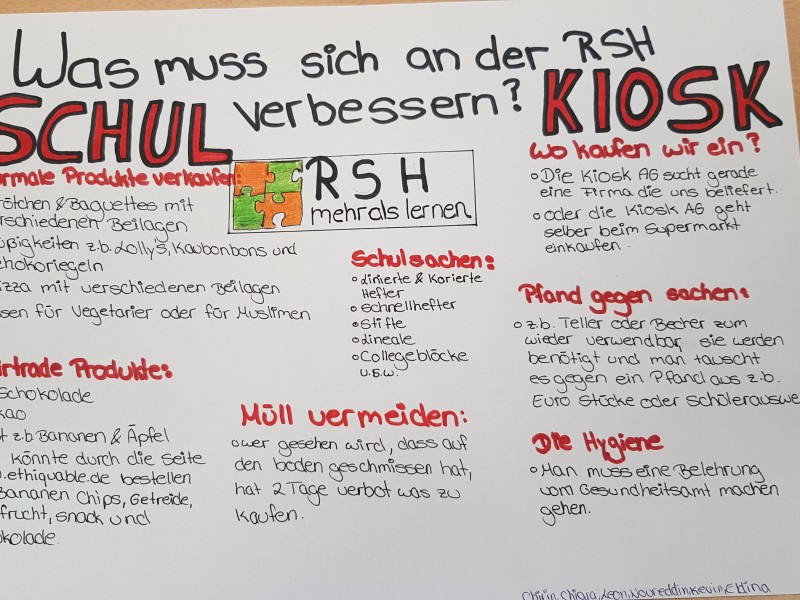 Was muss sich an der RSH
SCHUL verbessern? KIOSK
RSH
mehr als lernen
Produkte verkaufen:
& Baguettes mit
Beilagen
z.b. Lollys, Kaubonbons und
mit verschiedenen Beilagen
für Vegetarier oder für Muslimen
Produkte:
Schokolade
z.b Bananen & Äpfel
könnte durch die Seite
.ethiquable.de bestellen
Bananen Chips, Getreide,
frucht, snack und
Schulsachen:
• linierte & karierte
Hefter
• schnellhefter
• Stifte
• Lineale
• Collegeblöcke
u.s.w.
Müll vermeiden:
• wer gesehen wird, dass auf
den boden geschmissen hat,
hat 2 Tage verbot was zu
kaufen.
Wo kaufen wir ein?
• Die Kiosk AG sucht gerade
eine Firma die uns beliefert.
• oder die Kiosk AG geht
selber beim Supermarkt
einkaufen.
Pfand gegen sachen:
• z.b. Teller oder Becher zum
wieder verwendbar, sie werden
benötigt und man tauscht
es gegen ein Pfand aus z.b.
Euro Stücke oder
Die Hygiene
• Man muss eine Belehrung
vom Gesundheitsamt machen
gehen.
Chiara, Leon, Noureddin, Kevin,